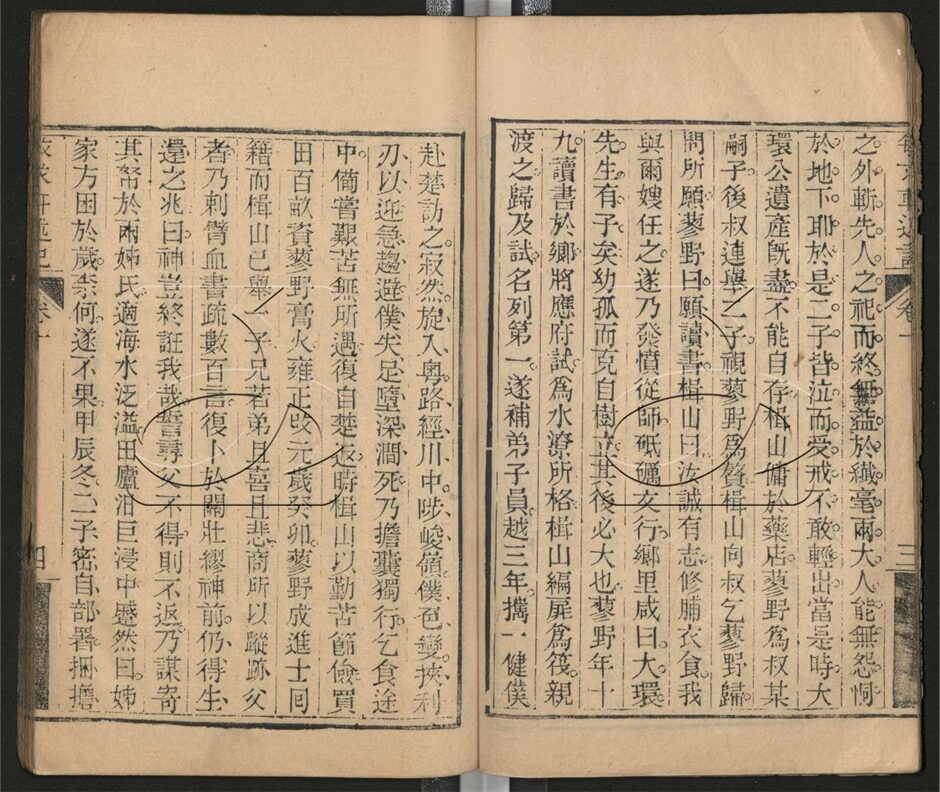 之外斬先人之祀而終無益於纖毫兩大人能無怨恫
於地下耶於是二子皆泣而受戒不敢輕出當是時大
環公遺產旣盡不能自存楫山傭於藥店蓼野爲叔某
嗣子後叔連舉乙子視蓼野爲贅楫山向叔乞蓼野歸
問所願蓼野曰願讀書楫山曰汝誠有志修脯衣食我
與爾嫂任之遂乃發憤從師砥礪文行鄉里咸曰大環
先生有子矣幼孤而克自樹立其後必大也蓼野年十
九讀書於鄉將應府試爲水潦所格楫山編扉爲筏親
渡之歸及試名列第一遂補弟子員越三年攜一健僕
三
赴楚訪之寂然旋入粵路經川中陟峻嶺僕色變挾利
刃以迎急趨避僕失足墮深澗死乃擔囊獨行乞食途
中備嘗艱苦無所遇復自楚返時楫山以勤苦節儉買
田百畝資蓼野膏火雍正改元歲癸卯蓼野成進士囘
籍而楫山已舉一子兄若弟且喜且悲商所以蹤跡父
者乃刺臂血書疏數百言復卜於關壯繆神前仍得生
還之兆曰神豈終誑我哉誓尋父不得則不返乃謀寄
其帑於兩姊氏適海水泛溢田廬汨巨浸中慼然曰姊
家方困於歲柰何遂不果甲辰冬二子密自部署捆擔
四